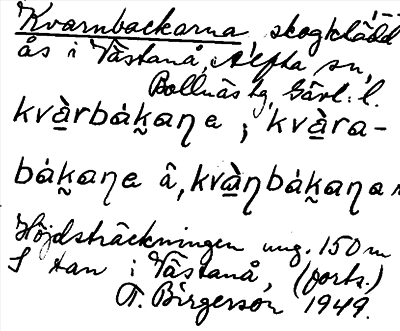 Kvarnbackarna skogklädd
ås i Västanå, Alfta sn,
Bollnäs tg, Gävl. l.
kvàrbáka̮ɳe, kvàra-
báka̮ɳe å, kvàɳbáka̮ɳa
Höjdsträckningen ung. 150 m
S tan i Västanå, (forts.)
T. Birgerson 1949.